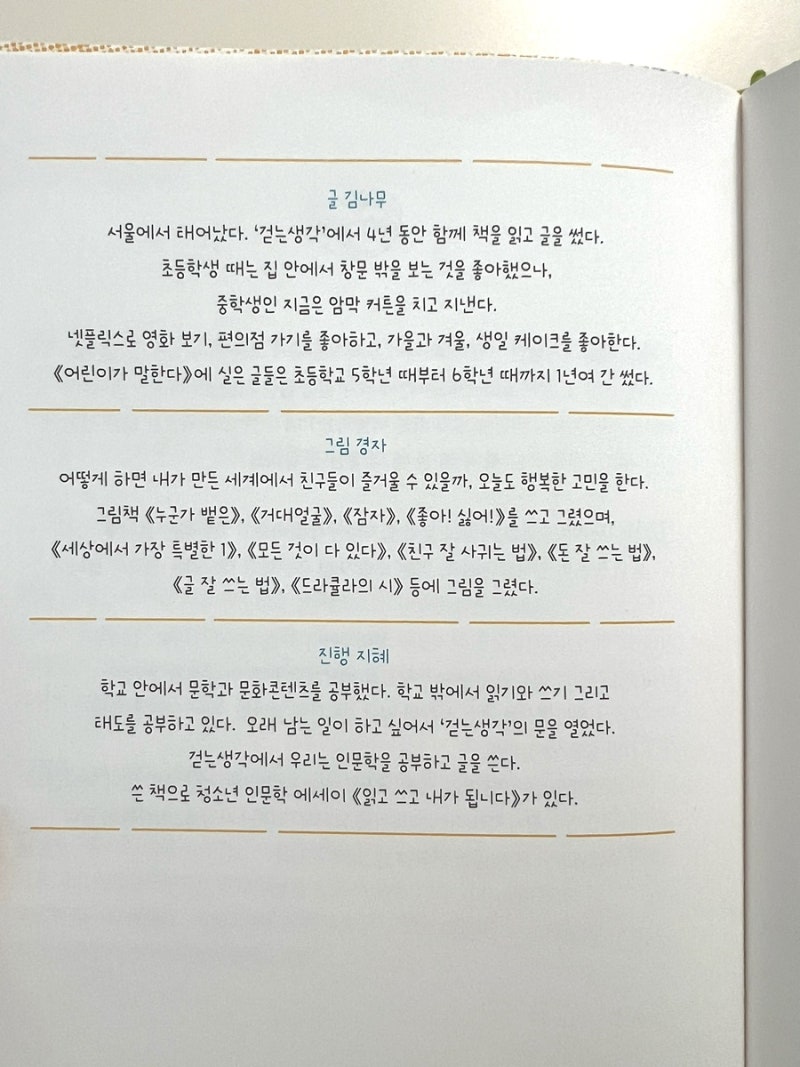 글 김나무
서울에서 태어났다. ‘걷는생각’에서 4년 동안 함께 책을 읽고 글을 썼다.
초등학생 때는 집 안에서 창문 밖을 보는 것을 좋아했으나,
중학생인 지금은 암막 커튼을 치고 지낸다.
넷플릭스로 영화 보기, 편의점 가기를 좋아하고, 가을과 겨울, 생일 케이크를 좋아한다.
《어린이가 말한다》에 실은 글들은 초등학교 5학년 때부터 6학년 때까지 1년여 간 썼다.
그림 경자
어떻게 하면 내가 만든 세계에서 친구들이 즐거울 수 있을까, 오늘도 행복한 고민을 한다.
그림책 《누군가 뱉은》, 《거대얼굴》, 《잠자》, 《좋아! 싫어!》를 쓰고 그렸으며,
《세상에서 가장 특별한 1》, 《모든 것이 다 있다》, 《친구 잘 사귀는 법》, 《돈 잘 쓰는 법》,
《글 잘 쓰는 법》, 《드라큘라의 시》 등에 그림을 그렸다.
진행 지혜
학교 안에서 문학과 문화콘텐츠를 공부했다. 학교 밖에서 읽기와 쓰기 그리고
태도를 공부하고 있다. 오래 남는 일이 하고 싶어서 ‘걷는생각’의 문을 열었다.
걷는생각에서 우리는 인문학을 공부하고 글을 쓴다.
쓴 책으로 청소년 인문학 에세이 《읽고 쓰고 내가 됩니다》가 있다.